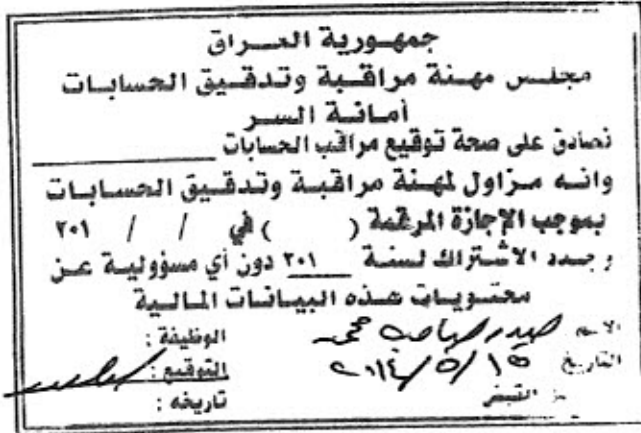 جمهورية العراق
مجلس مهنة مراقبة وتدقيق الحسابات
أمانة السر
نصادق على صحة توقيع مراقب الحسابات
وانه مزاول لمهنة مراقبة وتدقيق الحسابات
بموجب الإجازة المرقمة (      ) في   /   / ٢٠١
و سدد الاشتراك لسنة ٢٠١ دون أي مسؤولية عن
محتويات هذه البيانات المالية
الاسم حيدر صاحب الوظيفة :
التاريخ ١٥/٥/٢٠١٤ التوقيع :
القبض تاريخه :